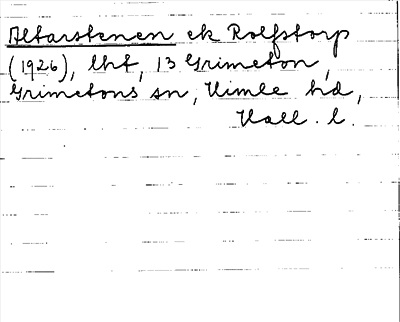 Altarstenen ek Rolfstorp
(1926), lht, 13 Grimeton,
Grimetons sn, Himle hd,
Hall. l.